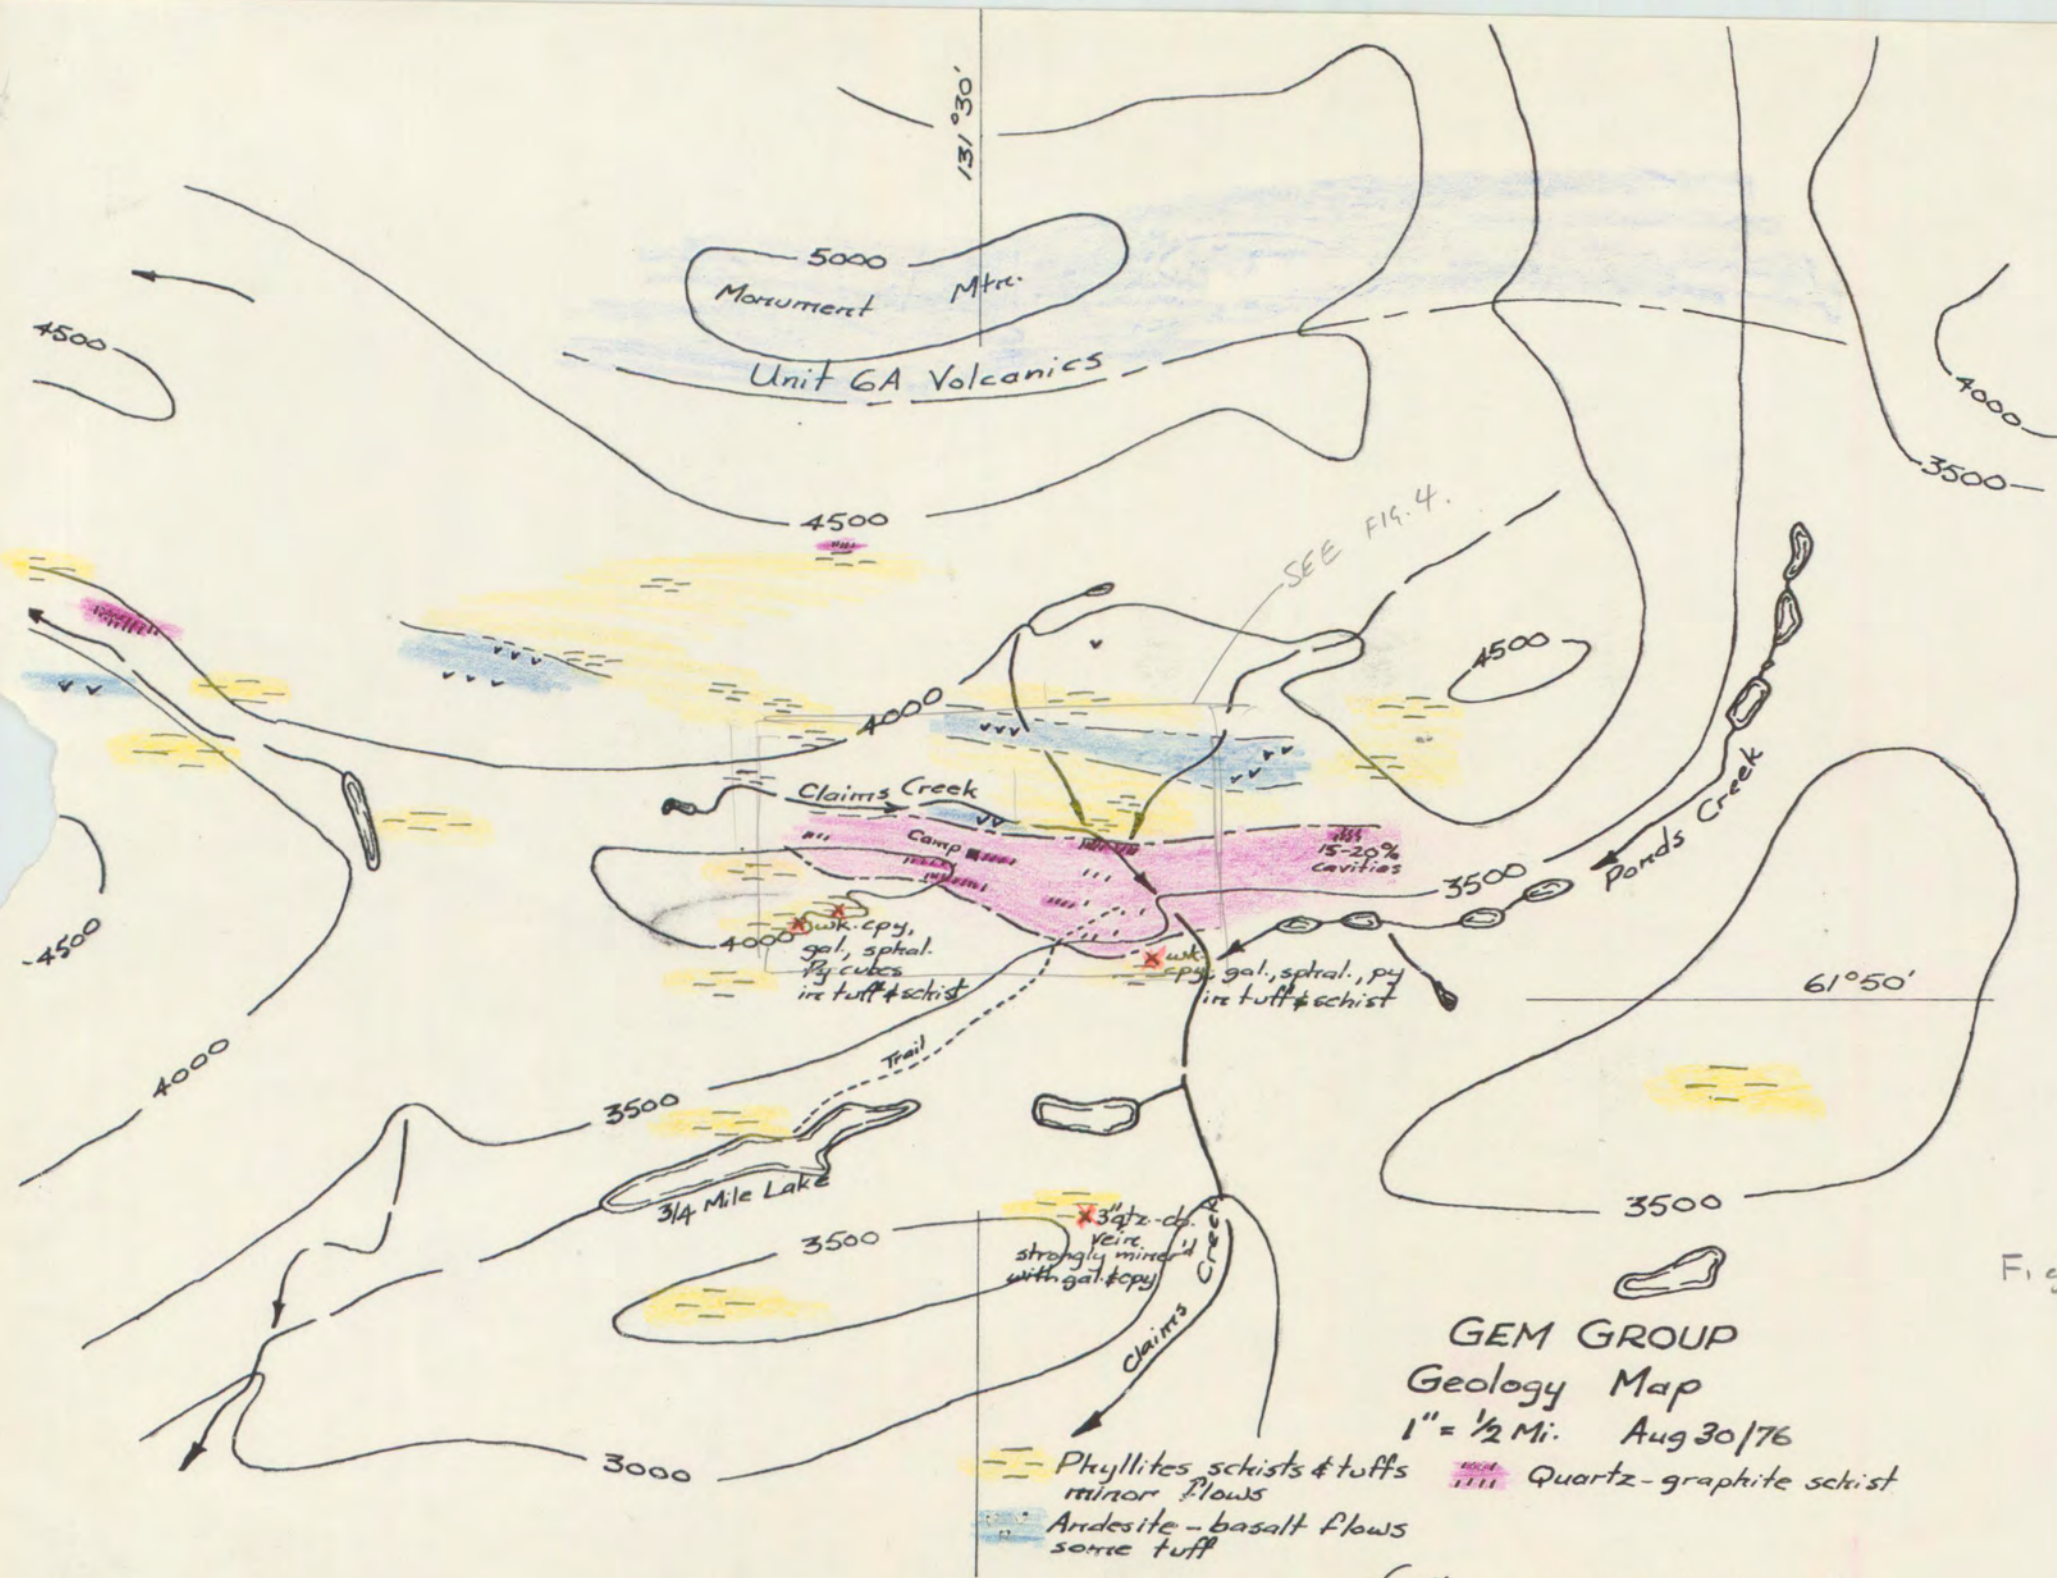 131°30'
5000
Monument Mtn.
4500
Unit 6A Volcanics
4000
3500
4500
SEE FIG. 4.
4500
4000
Claims Creek
Camp
15-20%
cavities
Ponds Creek
3500
4500
4000
wk. cpy,
gal., sphal.
Py cubes
in tuff & schist
wk.
cpy, gal., sphal., py
in tuff & schist
61°50'
Trail
4000
3500
3/4 Mile Lake
3500
3500
3" qtz.-cb.
vein
strongly miner'd
with gal. & cpy
Claims Creek
GEM GROUP
Geology Map
1" = 1/2 Mi. Aug 30/76
Phyllites schists & tuffs
minor flows
Quartz-graphite schist
Andesite - basalt flows
some tuff
3000